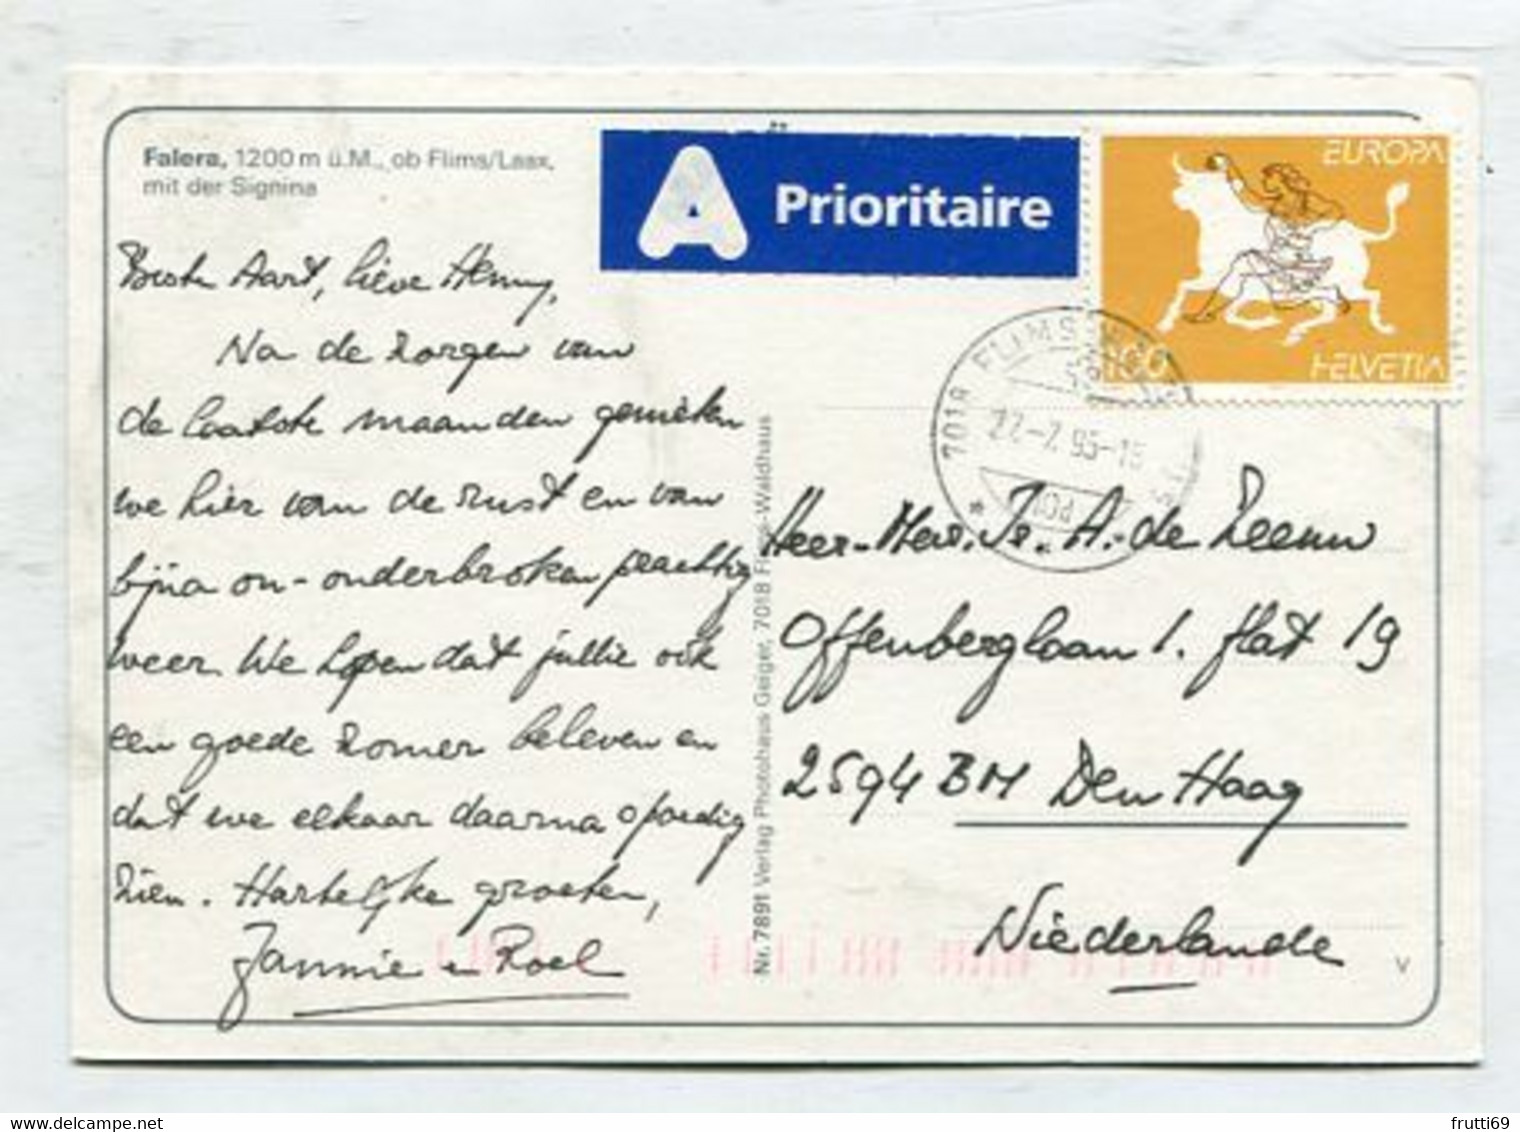 Falera, 1200 m ü.M., ob Flims/Laax,
mit der Signina
A Prioritaire
EUROPA
100
HELVETIA
7018 FLIMS
-7.95-18
Beste Aart, lieve Henny,
Na de zorgen van
de laatste maanden genieten
we hier van de rust en van
bijna on-onderbroken prachtig
weer. We hopen dat jullie ook
een goede zomer beleven en
dat we elkaar daarna spoedig
zien. Hartelijke groeten,
Jannie en Roel
Nr. 7891 Verlag Photohaus Geiger, 7018 Flims-Waldhaus
Heer-Mevr. Ir. A. de Zeeuw
Offenberglaan 1. flat 19
2594 BM Den Haag
Niederlande
V
frutti69